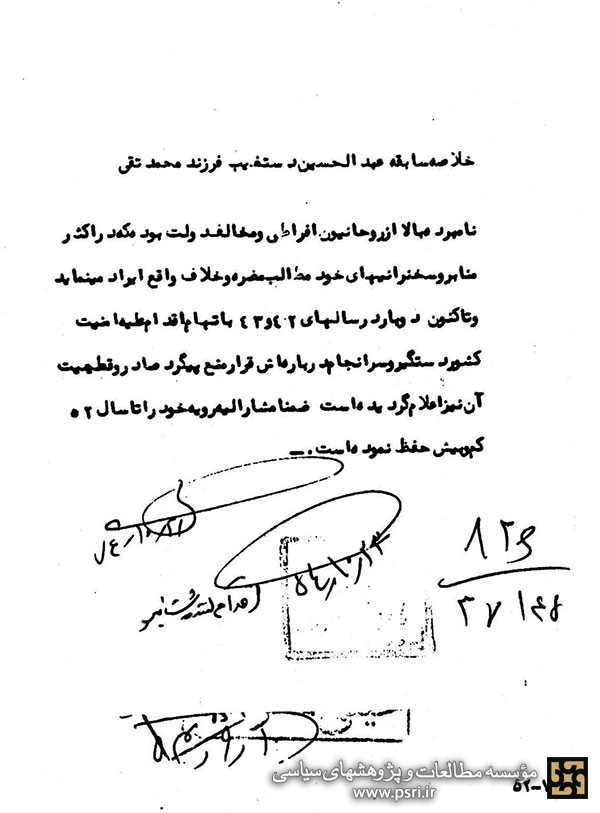 خلاصه سابقه عبدالحسین دستغیب فرزند محمد تقی
نامبرده بالا از روحانیون افراطی و مخالف دولت بوده که در اکثر
منابر و سخنرانیهای خود مطالب مضره و خلاف واقع ایراد مینماید
و تاکنون دوبار در سالهای ٤٢ و ٤٣ باتهام اقدام علیه امنیت
کشور دستگیر و سرانجام درباره اش قرار منع پیگرد صادر و قطعیت
آن نیز اعلام گردیده است ضمنا مشارالیه رویه خود را تا سال ٥٢
کم و بیش حفظ نموده است .ـ
۵٤/۱۰/۲۳
مؤسسه مطالعات و پژوهشهای سیاسی
www.psri.ir